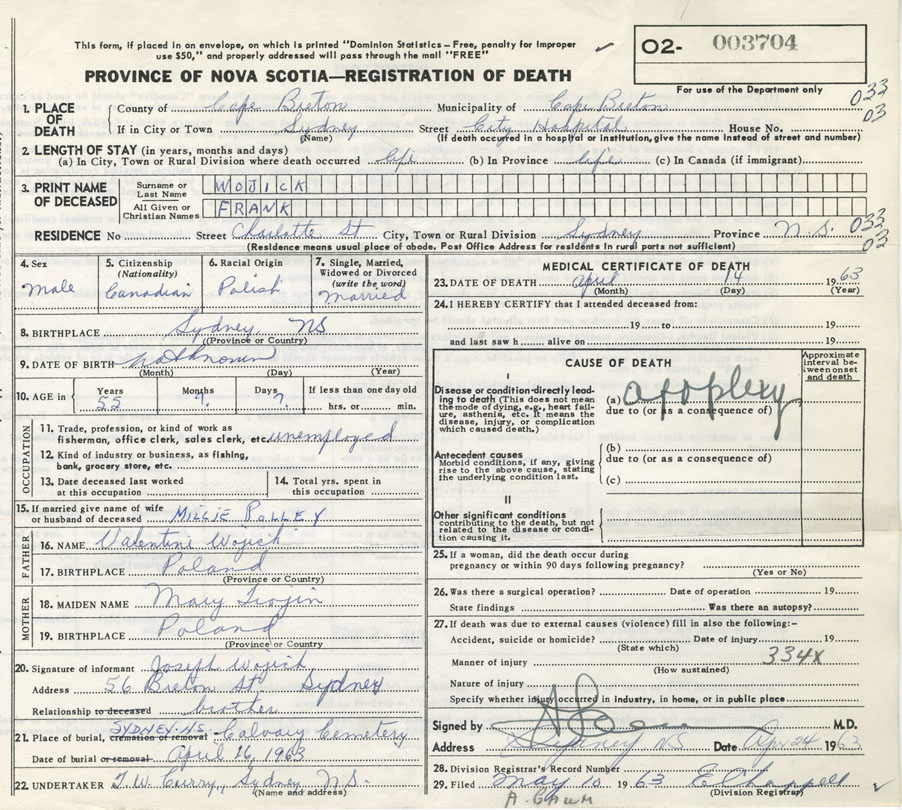 This form, if placed in an envelope, on which is printed "Dominion Statistics—Free, penalty for improper
use $50," and properly addressed will pass through the mail "FREE"
O2- 003704
For use of the Department only
PROVINCE OF NOVA SCOTIA—REGISTRATION OF DEATH
033
03
1. PLACE OF DEATH
County of Cape Breton Municipality of Cape Breton
If in City or Town Sydney Street City Hospital House No.
(Name) (If death occurred in a hospital or institution, give the name instead of street and number)
2. LENGTH OF STAY (in years, months and days)
(a) In City, Town or Rural Division where death occurred life (b) In Province life (c) In Canada (if immigrant)
3. PRINT NAME OF DECEASED
Surname or Last Name WOJICK
All Given or Christian Names FRANK
RESIDENCE No Street Charlotte St City, Town or Rural Division Sydney Province N.S. 033
03
(Residence means usual place of abode. Post Office Address for residents in rural parts not sufficient)
4. Sex
Male
5. Citizenship
(Nationality)
Canadian
6. Racial Origin
Polish
7. Single, Married,
Widowed or Divorced
(write the word)
Married
8. BIRTHPLACE Sydney NS
(Province or Country)
9. DATE OF BIRTH not known
(Month) (Day) (Year)
10. AGE in Years Months Days If less than one day old
55 ? ? hrs. or min.
OCCUPATION
11. Trade, profession, or kind of work as
fisherman, office clerk, sales clerk, etc. unemployed
12. Kind of industry or business, as fishing,
bank, grocery store, etc.
13. Date deceased last worked
at this occupation
14. Total yrs. spent in
this occupation
15. If married give name of wife
or husband of deceased MILLIE POLLEY
FATHER
16. NAME Valentini Wojick
17. BIRTHPLACE Poland
(Province or Country)
MOTHER
18. MAIDEN NAME Mary
19. BIRTHPLACE Poland
(Province or Country)
20. Signature of informant Joseph Wojick
Address 56 Breton St Sydney
Relationship to deceased brother
21. Place of burial, cremation or removal SYDNEY.N.S. Calvary Cemetery
Date of burial or removal April 16, 1963
22. UNDERTAKER T.W. Curry, Sydney N.S.
(Name and address)
MEDICAL CERTIFICATE OF DEATH
23. DATE OF DEATH April 14 1963
(Month) (Day) (Year)
24. I HEREBY CERTIFY that I attended deceased from:
19 to 19
and last saw h alive on 19
CAUSE OF DEATH
Approximate interval between onset and death
I
Disease or condition directly leading to death (This does not mean the mode of dying, e.g., heart failure, asthenia, etc. It means the disease, injury, or complication which caused death.)
(a) apoplexy
due to (or as a consequence of)
Antecedent causes
Morbid conditions, if any, giving rise to the above cause, stating the underlying condition last.
(b)
due to (or as a consequence of)
(c)
II
Other significant conditions
contributing to the death, but not related to the disease or condition causing it.
25. If a woman, did the death occur during
pregnancy or within 90 days following pregnancy?
(Yes or No)
26. Was there a surgical operation? Date of operation 19
State findings Was there an autopsy?
27. If death was due to external causes (violence) fill in also the following:-
Accident, suicide or homicide? Date of injury 19
(State which)
334X
Manner of injury
(How sustained)
Nature of injury
Specify whether injury occurred in industry, in home, or in public place
Signed by M.D.
Address Sydney NS Date Apr 24 1963
28. Division Registrar's Record Number
29. Filed May 10 1963 E Chappell
(Division Registrar)
A. GAUM